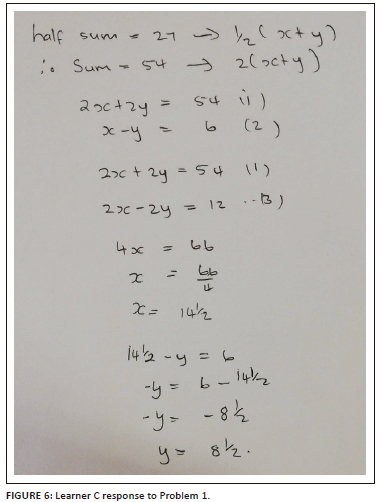 half sum = 27 → ½(x+y)
∴ Sum = 54 → 2(x+y)
2x+2y = 54 (1)
x-y = 6 (2)
2x+2y = 54 (1)
2x-2y = 12 ..(3)
4x = 66
x = 66/4
x = 14½
14½ - y = 6
-y = 6 - 14½
-y = -8½
y = 8½.
FIGURE 6: Learner C response to Problem 1.